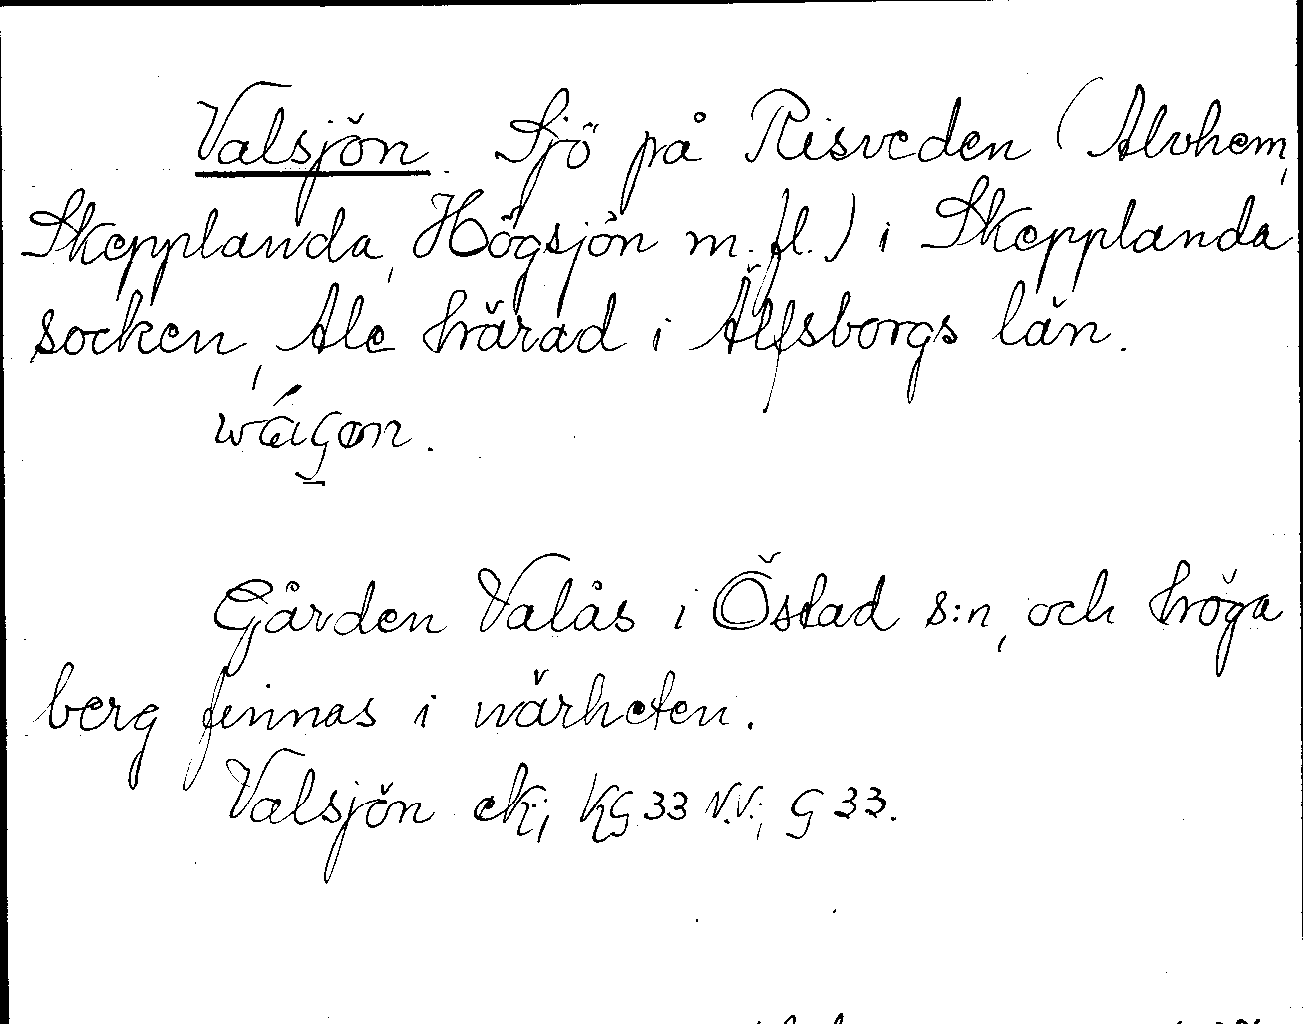 Valsjön. Sjö på Risveden (Alvhem,
Skepplanda, Högsjön m. fl.) i Skepplanda
socken, Ale härad i Älfsborgs län.
Gården Valås i Östad s:n, och höga
berg finnas i närheten.
Valsjön ek; KG 33 N.V.; G 33.